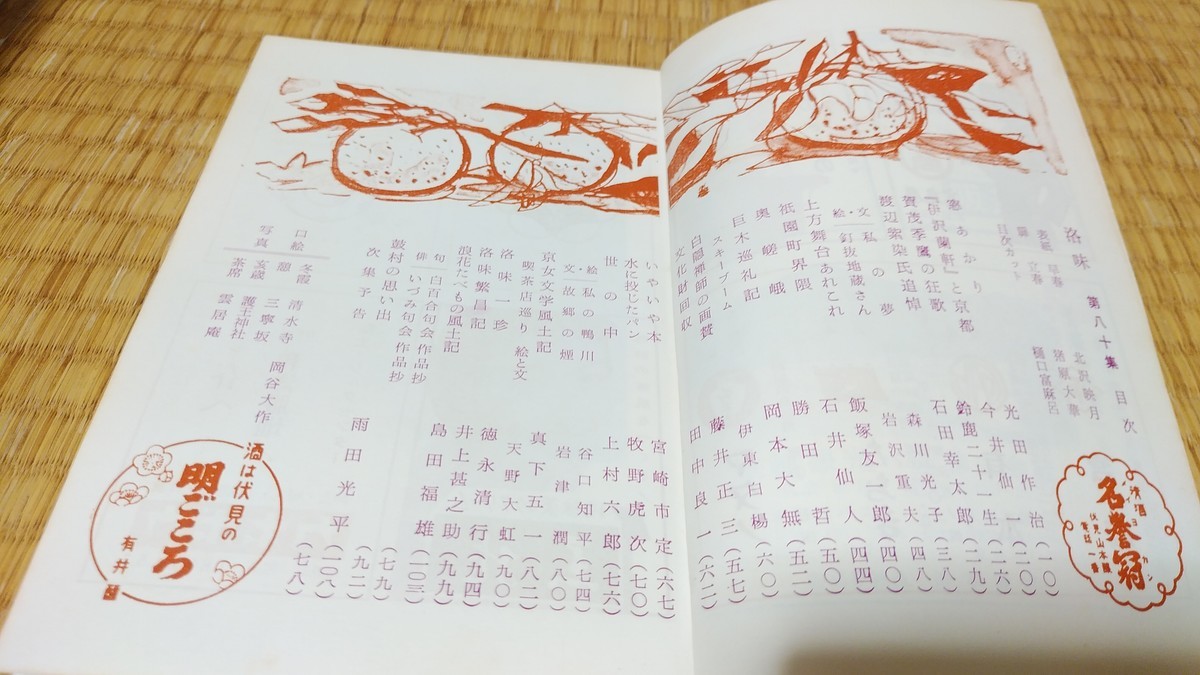 洛味 第八十集 目次
表紙 早春 北沢映月
扉 立春 猪原大華
目次カット 樋口富麻呂
窓あかり 光田作治(一〇)
『伊沢蘭軒』と京都 今井仙一(二六)
賀茂季鷹の狂歌 鈴鹿二十一生(二九)
渡辺紫染氏追悼 石田幸太郎(三八)
私の夢 森川光子(四八)
文・絵 釘抜地蔵さん 岩沢重夫(四〇)
上方舞台あれこれ 飯塚友一郎(四四)
祇園町界隈 石井仙人
奥嵯峨 勝田哲(五二)
巨木巡礼記 岡本大無(五五)
スキーブーム 伊東白楊(六〇)
白隠禅師の画賛 藤井正三(五七)
文化財回収 田中良一(六二)
いやいや本 宮崎市定(六七)
水に投じたパン 牧野虎次(七〇)
世の中 上村六郎(七六)
絵・文 私の鴨川 谷口知平(七四)
故郷の煙 岩津潤(八〇)
京女文学風土記 真下五一(八二)
喫茶店巡り 絵と文 天野大虹(九〇)
洛味一珍 徳永清行(九四)
洛味繁昌記 井上甚之助(九九)
浪花たべもの風土記 島田福雄(一〇三)
俳句 白百合句会作品抄
いづみ句会作品抄(七九)
鼓村の思い出 雨田光平(一〇八)
次集予告(七八)
口絵 冬籠 憩 清水寺 三寧坂
写真 玄蔵 茶席 護王神社 雲居庵
岡谷大作
清酒 ヨカン
名誉冠
伏見 山本
電話一番
酒は伏見の
明ごころ
有井